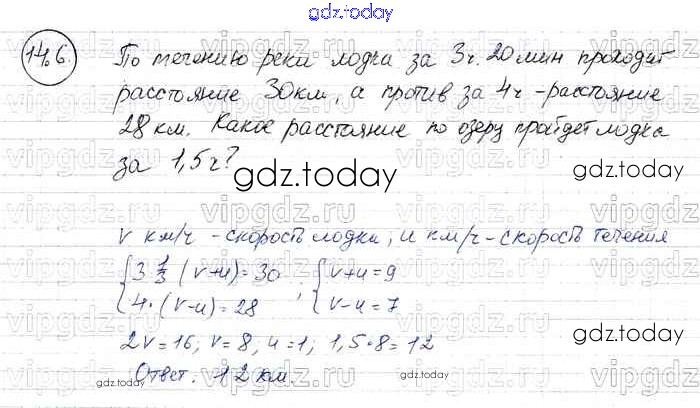 gdz.today
14.6. По течению реки лодка за 3ч. 20мин проходит
расстояние 30км, а против за 4ч - расстояние
28км. Какое расстояние по озеру пройдет лодка
за 1,5ч?
gdz.today
v км/ч - скорость лодки, u км/ч - скорость течения
{3 1/3 (v+u)=30 ; {v+u=9
{4·(v-u)=28 {v-u=7
2v=16; v=8, u=1; 1,5·8=12
Ответ. 12 км.
gdz.today
gdz.today
vipgdz.ru